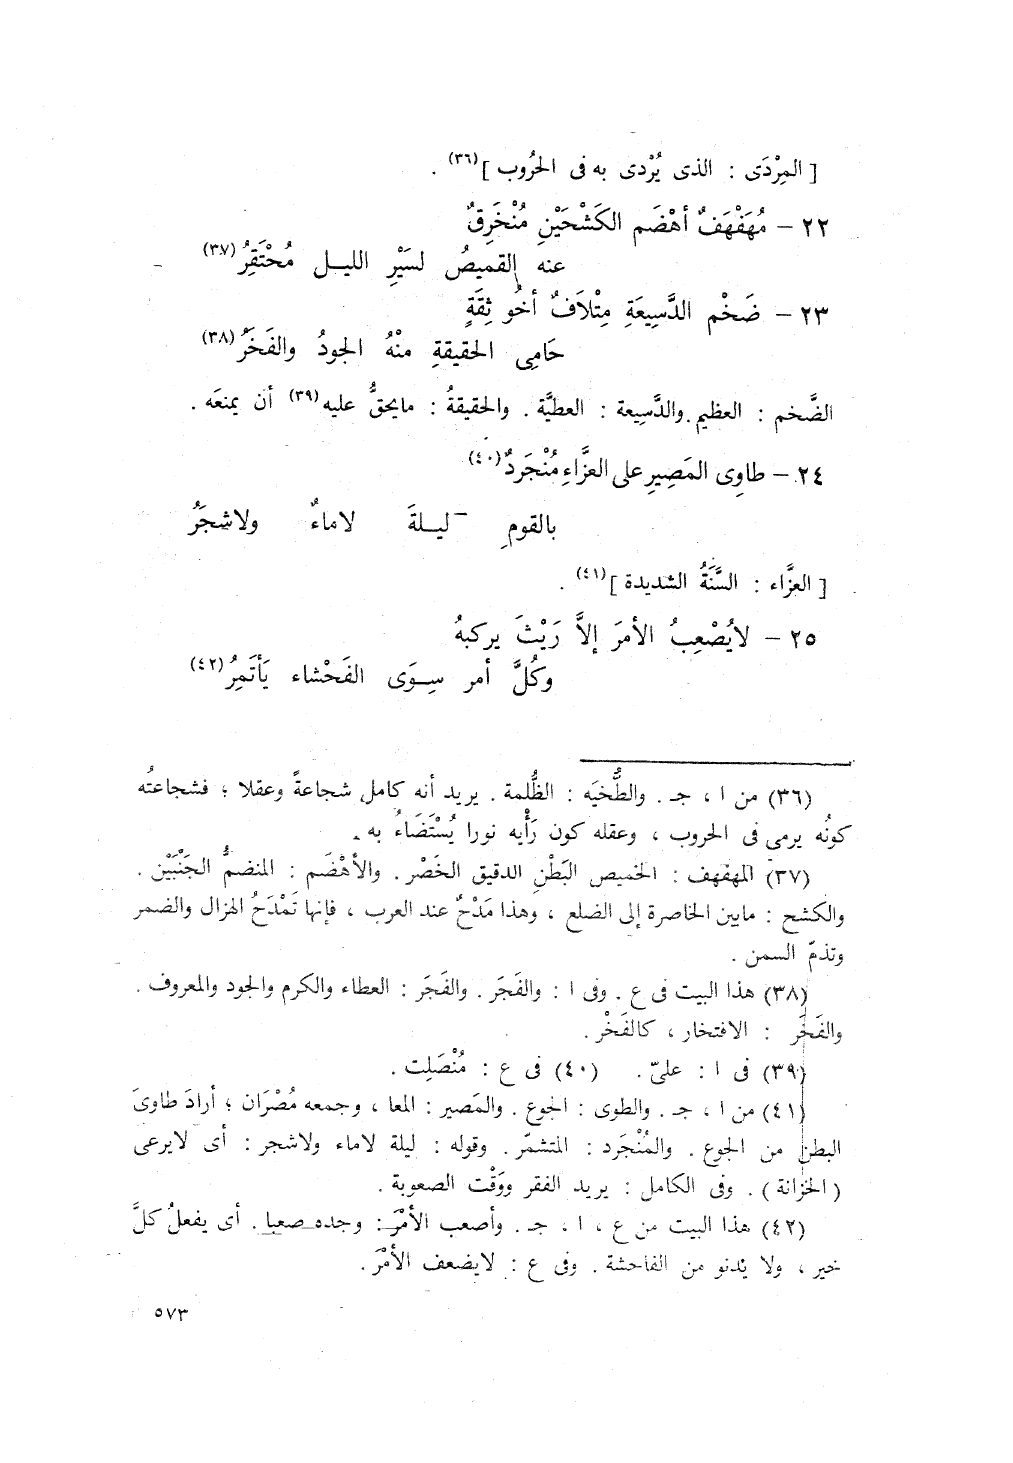 [ المِرْدَى : الذى يُرْدى به فى الحُروب ](٣٦) .
٢٢ – مُهَفْهَفٌ أهْضَم الكَشْحَيْنِ مُنْخَرِقٌ
عنه القميصُ لسَيْرِ الليل مُحْتَقِرُ(٣٧)
٢٣ – ضَخْم الدَّسِيعَةِ مِتْلاَفٌ أخُو ثِقَةٍ
حَامِى الحقيقةِ منْهُ الجودُ والفَخَرُ(٣٨)
الضَّخم : العظيم . والدَّسِيعة : العطيَّة . والحقيقةُ : مايحقُّ عليه(٣٩) أن يمنعَه .
٢٤ – طاوِى المَصِيرِ على العزَّاءِ مُنْجَردٌ(٤٠)
بالقومِ ليلةَ لاماءٌ ولاشجَرُ
[ العزَّاء : السَّنَةُ الشديدة ](٤١) .
٢٥ – لايُصْعِبُ الأمرَ إلاَّ رَيْثَ يركبهُ
وكُلَّ أمر سِوَى الفَحْشاء يَأتَمِرُ(٤٢)
(٣٦) من ا ، جـ . والطُّخيَه : الظُّلمة . يريد أنه كامل شجاعةً وعقلا ؛ فشجاعتُه
كونُه يرمى فى الحروب ، وعقله كون رَأْيه نورا يُسْتَضَاءُ به .
(٣٧) المهفهف : الخميص البَطْنِ الدقيق الخَصْر . والأهْضَم : المنضمُّ الجَنْبَيْن .
والكشح : مابين الخاصرة إلى الضلع ، وهذا مَدْحٌ عند العرب ، فإنها تَمْدَحُ الهزال والضمر
وتذمّ السمن .
(٣٨) هذا البيت فى ع . وفى ا : والفَجَر . والفَجَر : العطاء والكرم والجود والمعروف .
والفَخَر : الافتخار ، كالفَخْر .
(٣٩) فى ا : علىّ . (٤٠) فى ع : مُنْصَلِت .
(٤١) من ا ، جـ . والطوى : الجوع . والمَصير : المعا ، وجمعه مُصْرَان ؛ أرادَ طاوىَ
البطن من الجوع . والمُنْجَرد : المتشمّر . وقوله : ليلة لاماء ولاشجر : أى لايرعى
( الخزانة ) . وفى الكامل : يريد الفقر ووَقْت الصعوبة .
(٤٢) هذا البيت من ع ، ا ، جـ . وأصعب الأمْرَ : وجده صعبا . أى يفعلُ كلَّ
خير ، ولا يُدنو من الفاحشة . وفى ع : لايضعف الأمْرَ .
٥٧٣